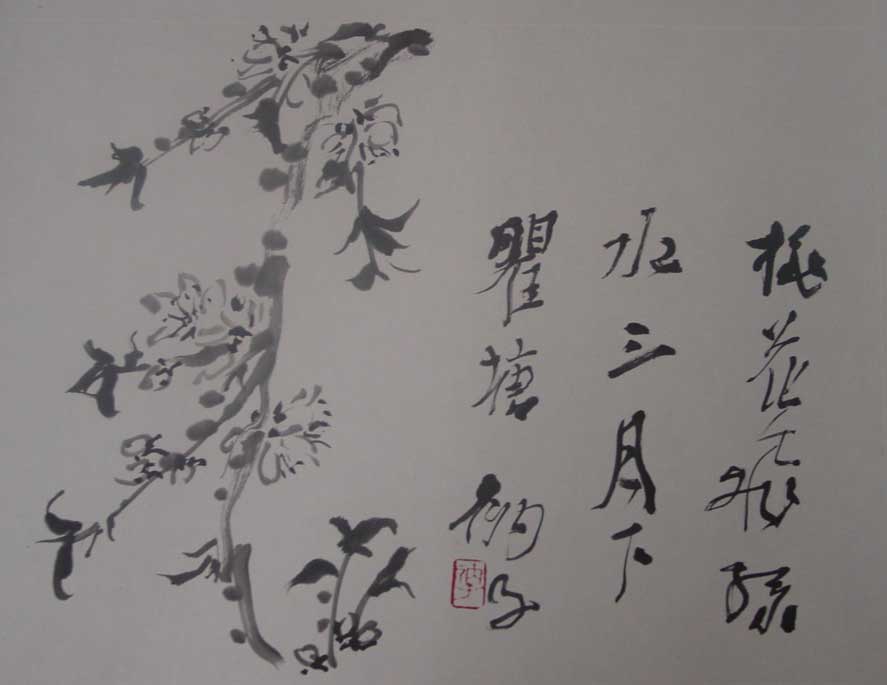 桃花飛綠
水三月下
瞿塘 衲子